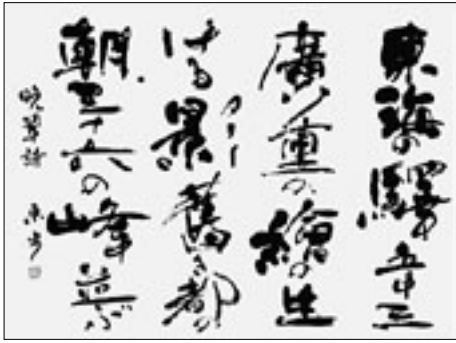 東海の驛五十三
廣重の繪の生
ける景舊き都の
朝三十六の峰並ぶ
晩翠詩